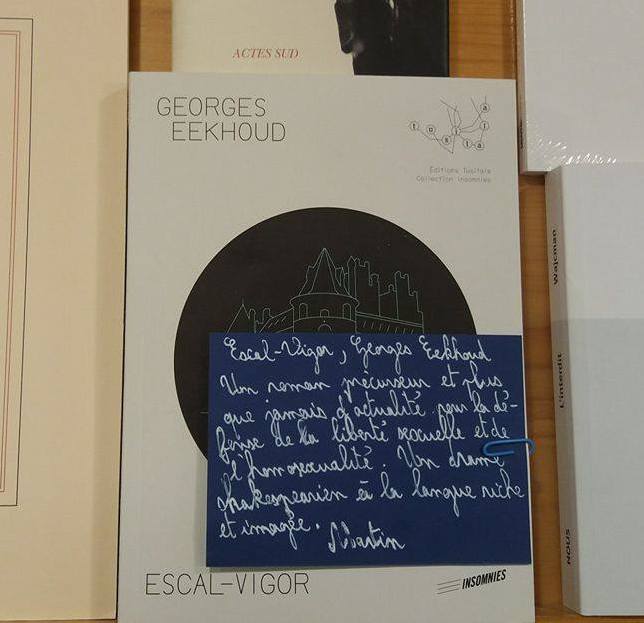 ACTES SUD
GEORGES
EEKHOUD
Éditions Tusitala
Collection Insomnies
Escal-Vigor, Georges Eekhoud
Un roman précurseur et plus
que jamais d'actualité pour la dé-
fense de la liberté sexuelle et de
l'homosexualité. Un drame
shakespearien à la langue riche
et imagée.
Martin
ESCAL-VIGOR
INSOMNIES
Wajcman
L'interdit
NOUS